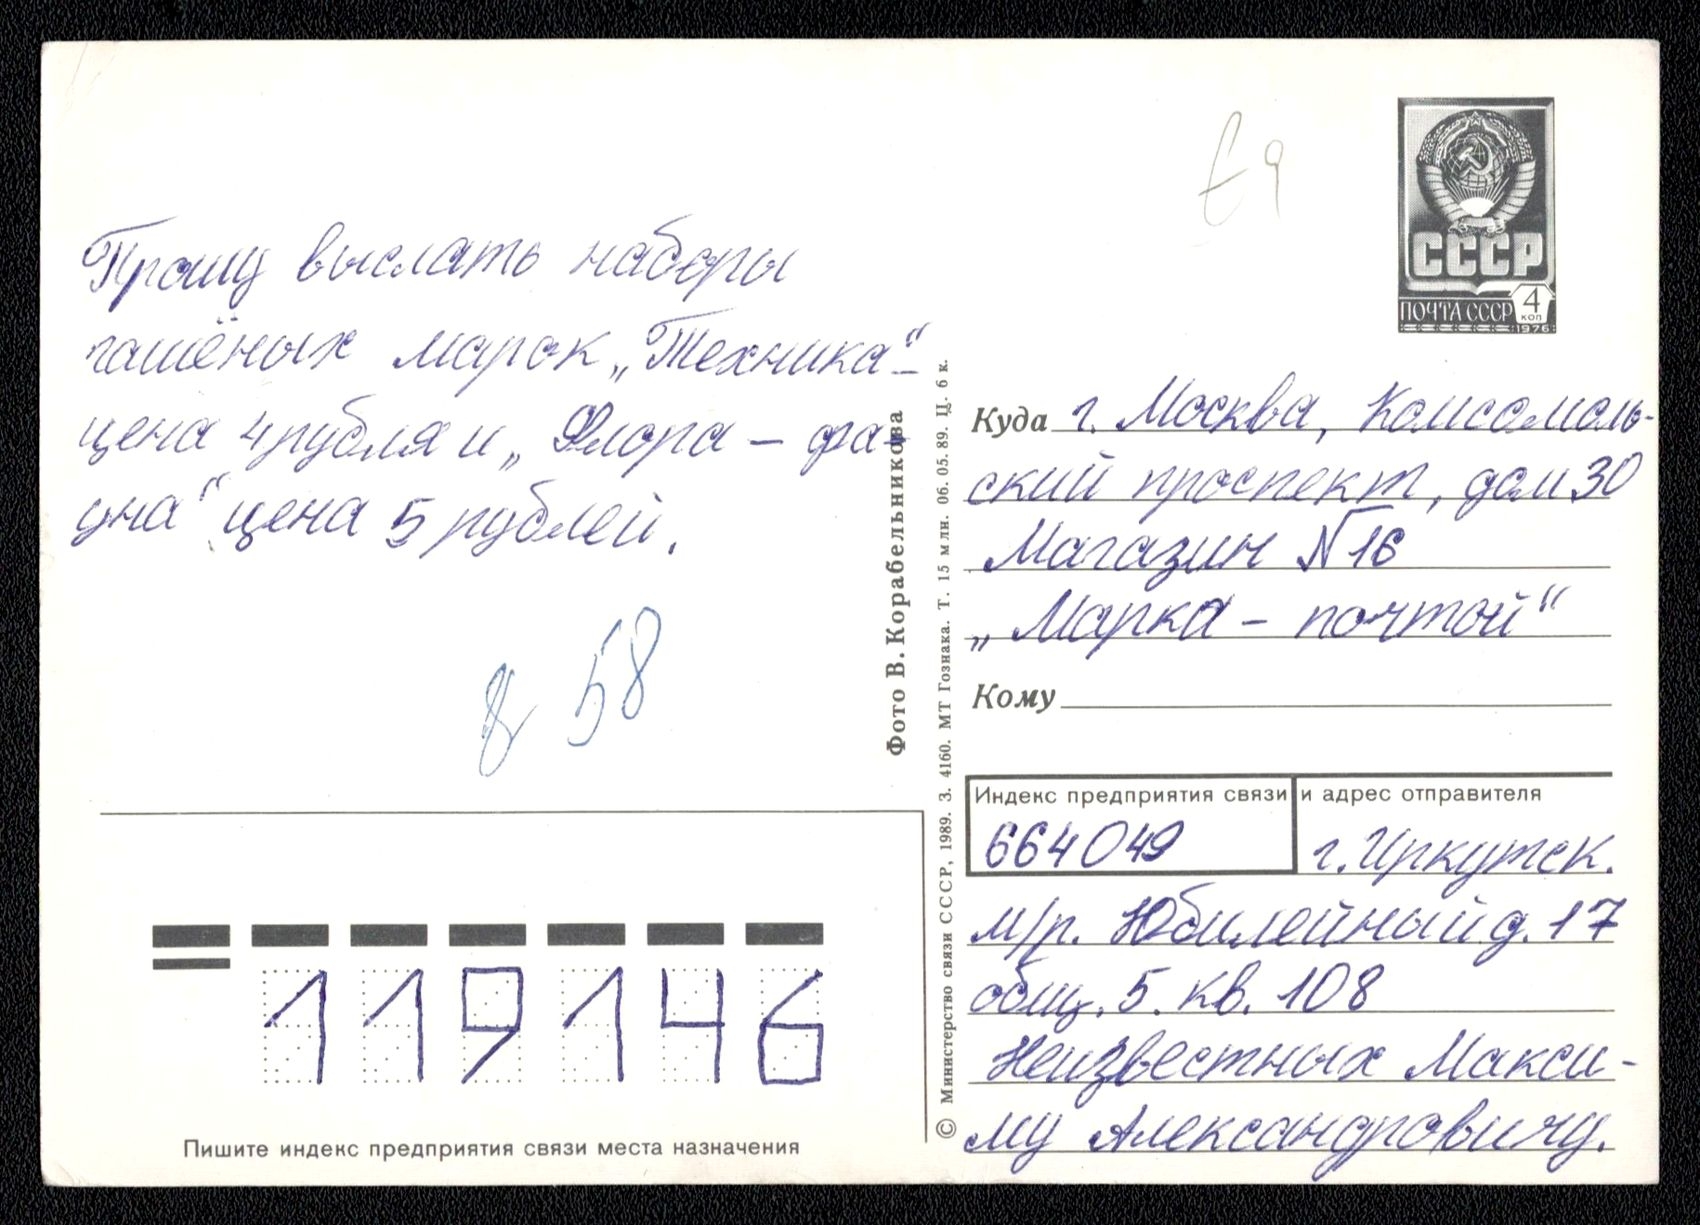 Прошу выслать наборы
гашёных марок „Техника“-
цена 4 рубля и „Флора – фа-
уна“ цена 5 рублей.
58
Пишите индекс предприятия связи места назначения
119146
Фото В. Корабельникова
© Министерство связи СССР, 1989. З. 4160. МТ Гознака. Т. 15 млн. 06. 05. 89. Ц. 6 к.
СССР
ПОЧТА СССР 4
КОП
1976
Куда г. Москва, Комсомоль-
ский проспект, дом 30
Магазин №16
„Марка – почтой“
Кому
Индекс предприятия связи и адрес отправителя
664049 г. Иркутск.
м/р. Юбилейный д. 17
общ. 5. кв. 108
Неизвестных Макси-
му Александровичу.